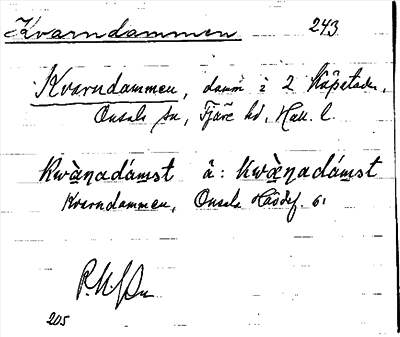 Kvarndammen 243
Kvarndammen, damm i 2 Köpstaden,
Onsala sn, Fjäre hd, Hall. l.
Kwàṇadámst å: Kwæ̀ṇadámst
Kvarndammen, Onsala Häradsf. 61
205